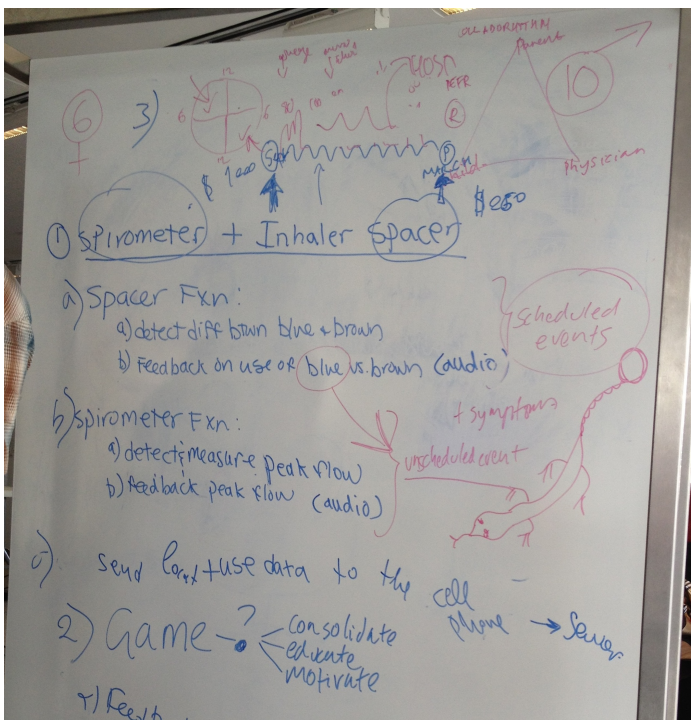 ALGORITHM
Parent
10
HOSP
PEFR
6
3)
12
6
6
12
R
P
MARCH
Physician
$ 1000
$250
① Spirometer + Inhaler Spacer
a) Spacer Fxn:
a) detect diff btwn blue & brown
b) Feedback on use of blue vs. brown (audio)
scheduled
events
+ symptoms
b) Spirometer Fxn:
a) detect & measure peak flow
b) feedback peak flow (audio)
unscheduled event
c) send + use data to the cell
phone → Server
2) Game - ?
consolidate
educate
motivate